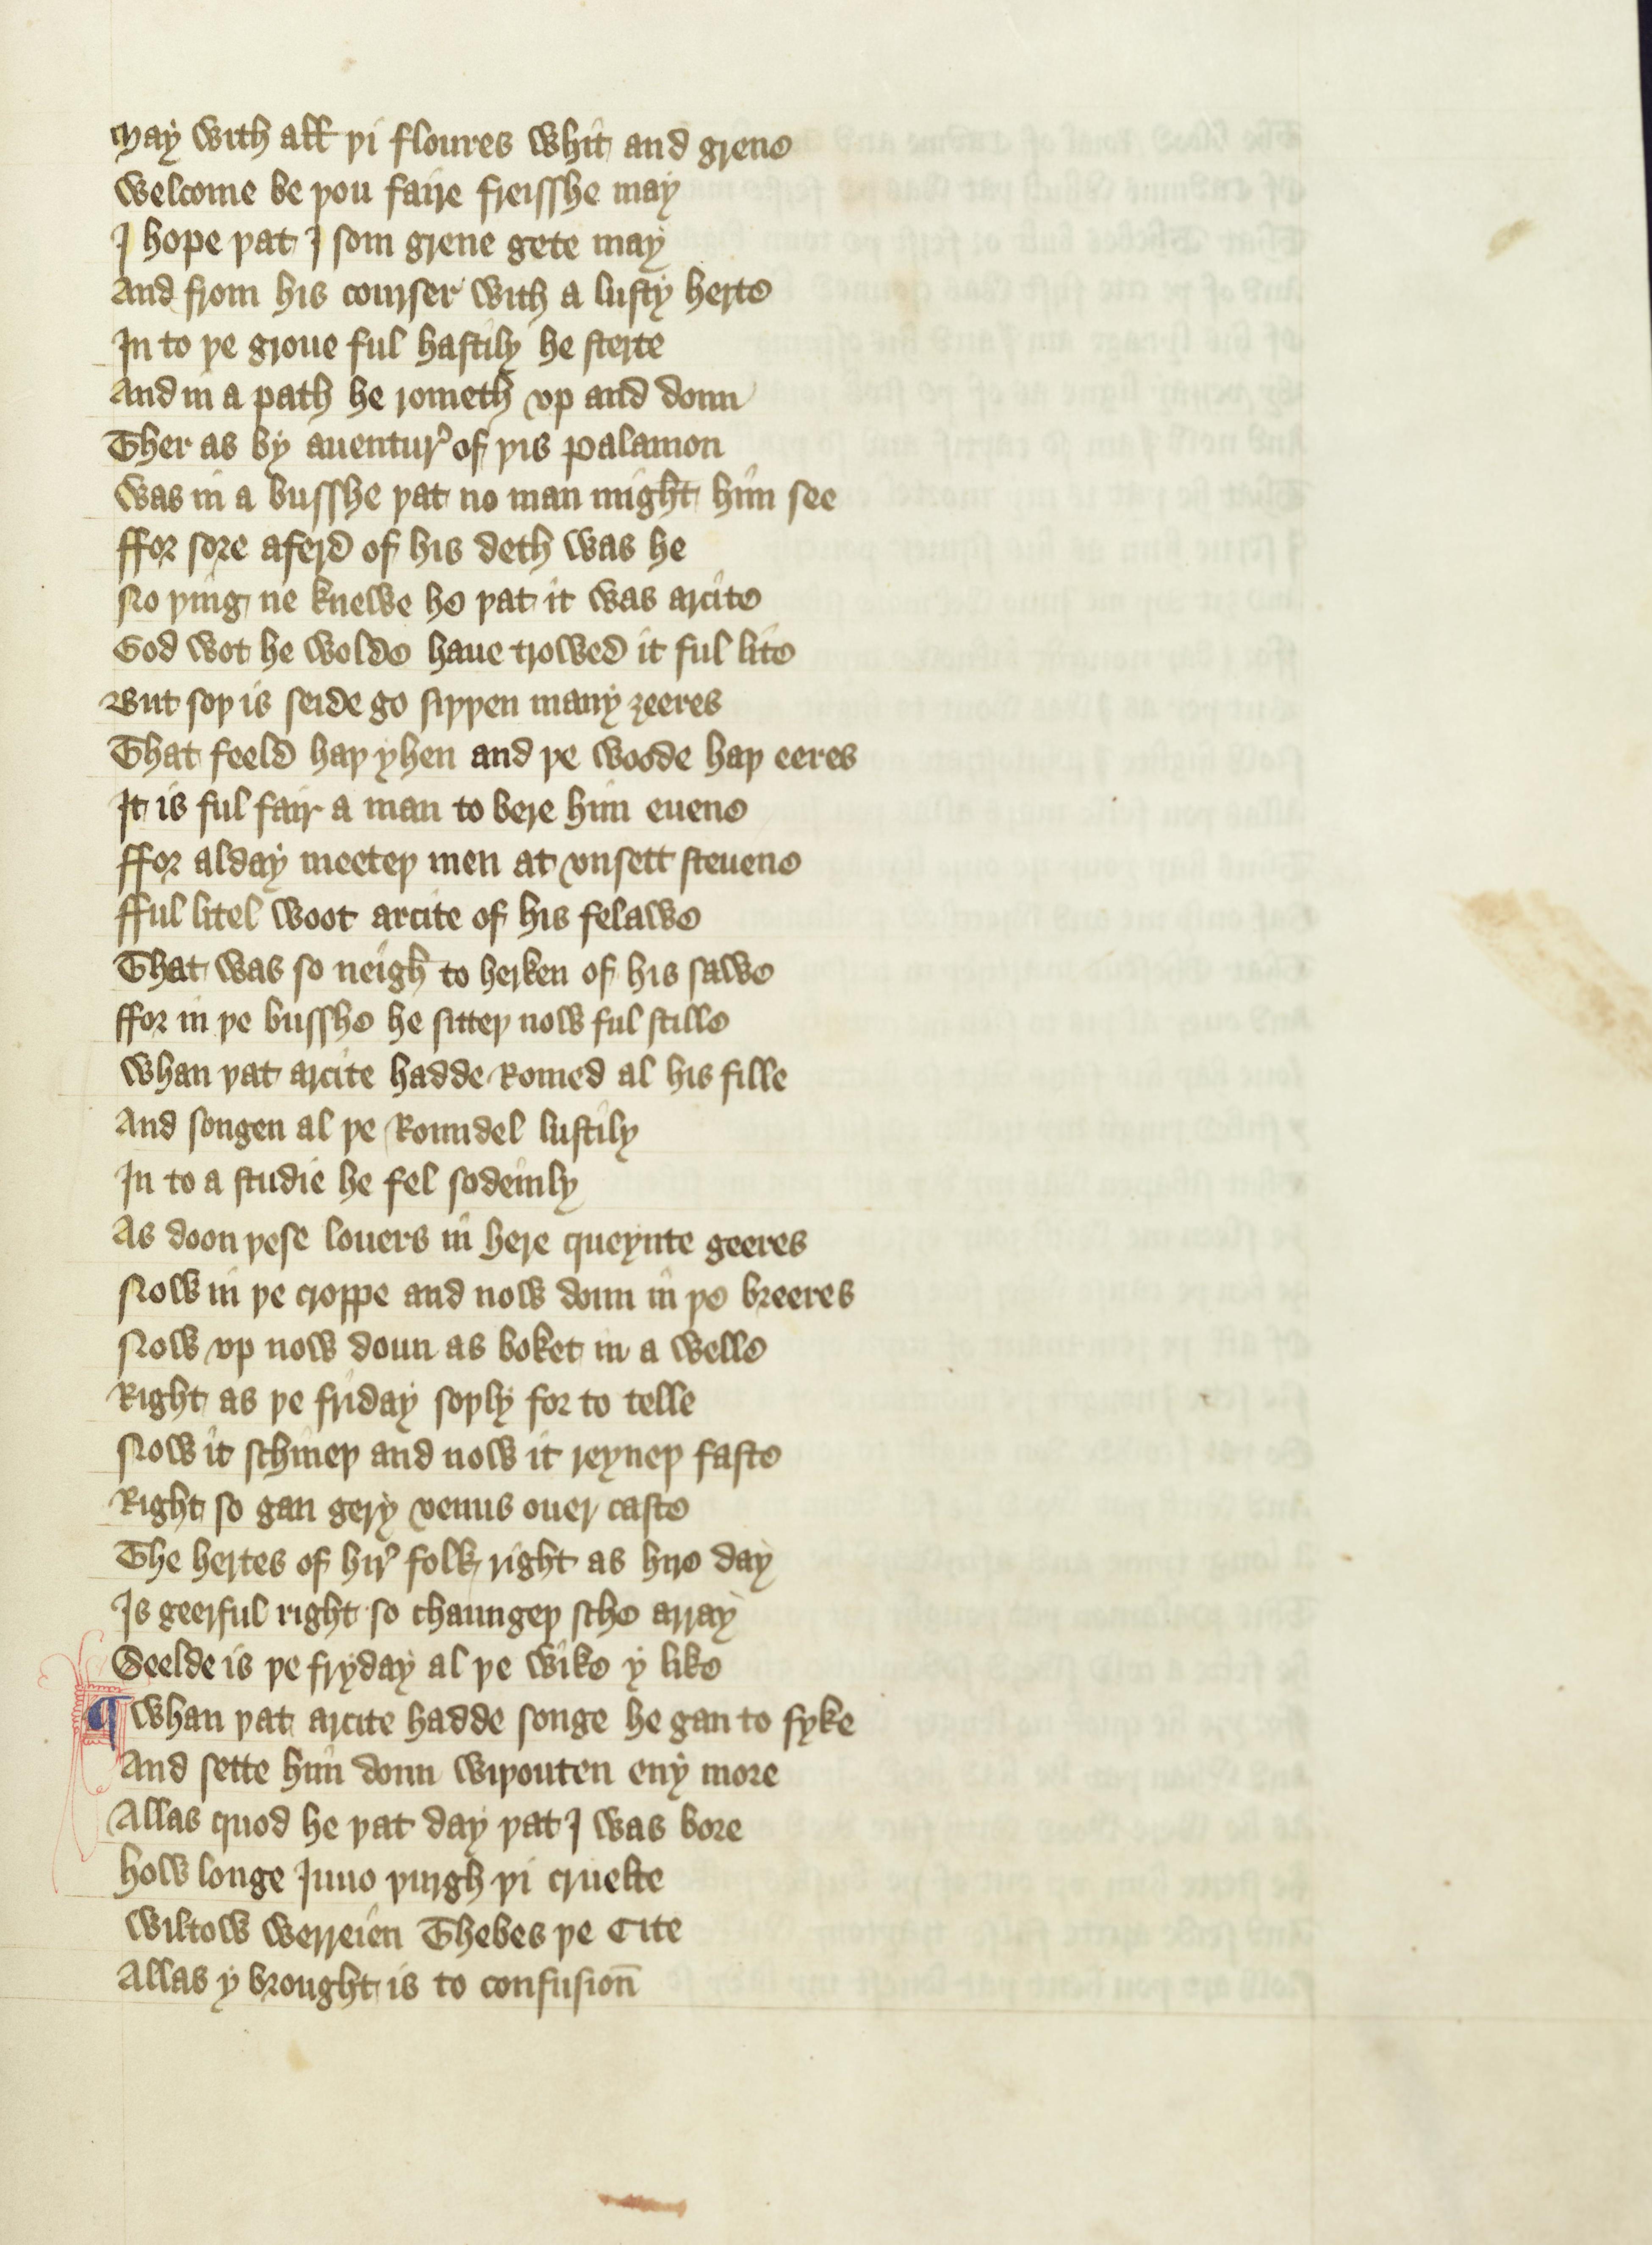 May with all þi floures whit and grene
Welcome be þou faire freisshe may
I hope þat I som grene gete may
And from his courser with a lusty herte
In to þe groue ful hastily he sterte
And in a path he rometh vp and doun
Ther as by auentur of þis Palamon
Was in a busshe þat no man might him see
ffor sore aferd of his deth was he
No þing ne knewe he þat it was arcite
God wot he wolde haue trowed it ful lite
But soþ is seide go siþþen many ȝeeres
That feeld haþ yhen and þe woode haþ eeres
It is ful fair a man to bere him euene
ffor alday meeteþ men at vnsett steuene
fful litel woot arcite of his felawe
That was so neigh to herken of his sawe
ffor in þe busshe he sitteþ now ful stille
Whan þat arcite hadde Romed al his fille
And songen al þe Roundel lustily
In to a studie he fel sodeinly
As doon þese louers in here queynte geeres
Now in þe croppe and now doun in þe breeres
Now vp now doun as boket in a welle
Right as þe friday soþly for to telle
Now it schineþ and now it reyneþ faste
Right so gan gery venus ouer caste
The hertes of hir folk right as hire day
Is geerful right so chaungeþ sche array
Seelde is þe fryday al þe wike y like
¶ Whan þat arcite hadde songe he gan to syke
And sette him doun wiþouten eny more
Allas quod he þat day þat I was bore
How longe Iuno þurgh þi cruelte
Wiltow werreien Thebes þe Cite
Allas y brought is to confusion